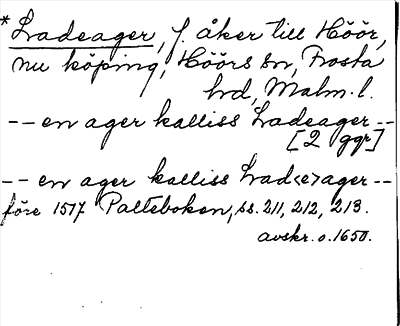 * Ladeager, f. åker till Höör,
nu köping, Höörs sn, Frosta
hd, Malm. l.
-- en ager kalliss Ladeager --
[2 ggr]
-- en ager kalliss Lad<e>ager --
före 1517 Palteboken, ss. 211, 212, 213.
avskr. o. 1650.